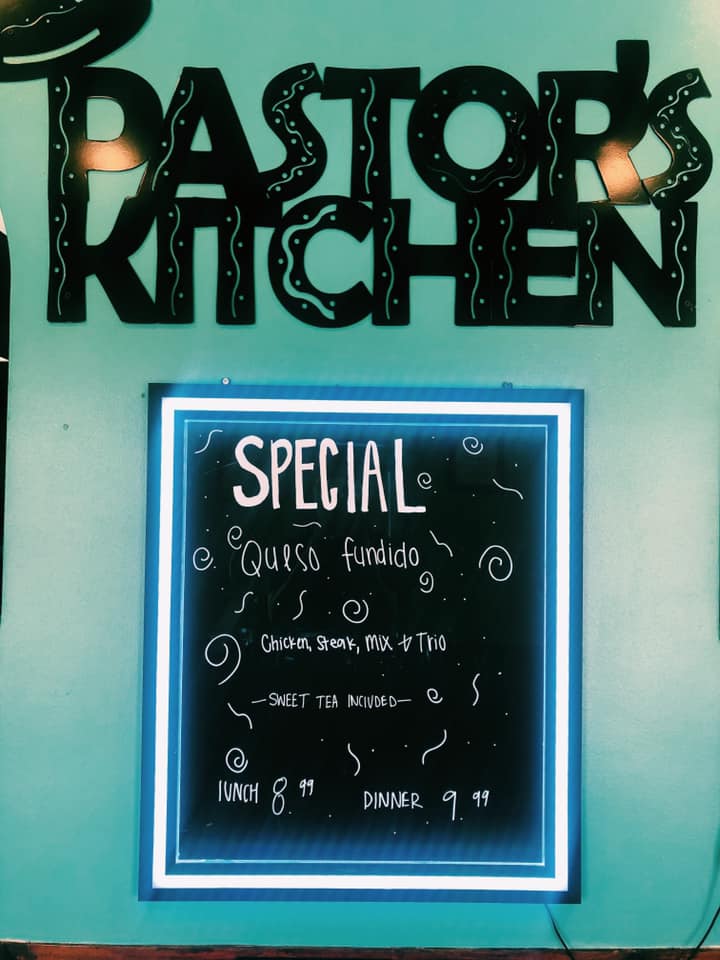 PASTOR'S
KITCHEN
SPECIAL
Queso fundido
Chicken, Steak, Mix & Trio
—SWEET TEA INCLUDED—
LUNCH 8.99 DINNER 9.99